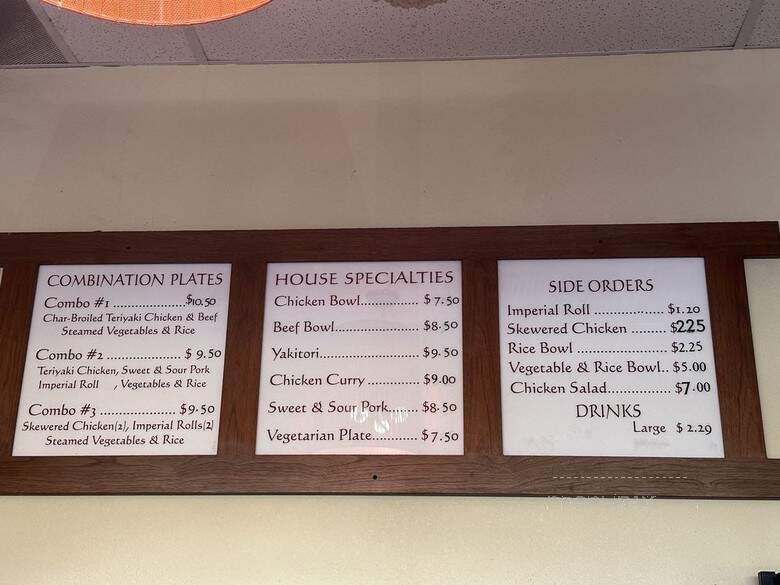 COMBINATION PLATES
Combo #1 ....................$10.50
Char-Broiled Teriyaki Chicken & Beef
Steamed Vegetables & Rice
Combo #2 .................... $ 9.50
Teriyaki Chicken, Sweet & Sour Pork
Imperial Roll , Vegetables & Rice
Combo #3 .................... $9.50
Skewered Chicken(2), Imperial Rolls(2)
Steamed Vegetables & Rice
HOUSE SPECIALTIES
Chicken Bowl............... $ 7.50
Beef Bowl..................... $8.50
Yakitori........................ $9.50
Chicken Curry ............. $9.00
Sweet & Sour Pork....... $8.50
Vegetarian Plate............ $7.50
SIDE ORDERS
Imperial Roll .................. $1.20
Skewered Chicken .......... $225
Rice Bowl ........................ $2.25
Vegetable & Rice Bowl.. $5.00
Chicken Salad................. $7.00
DRINKS
Large $ 2.29